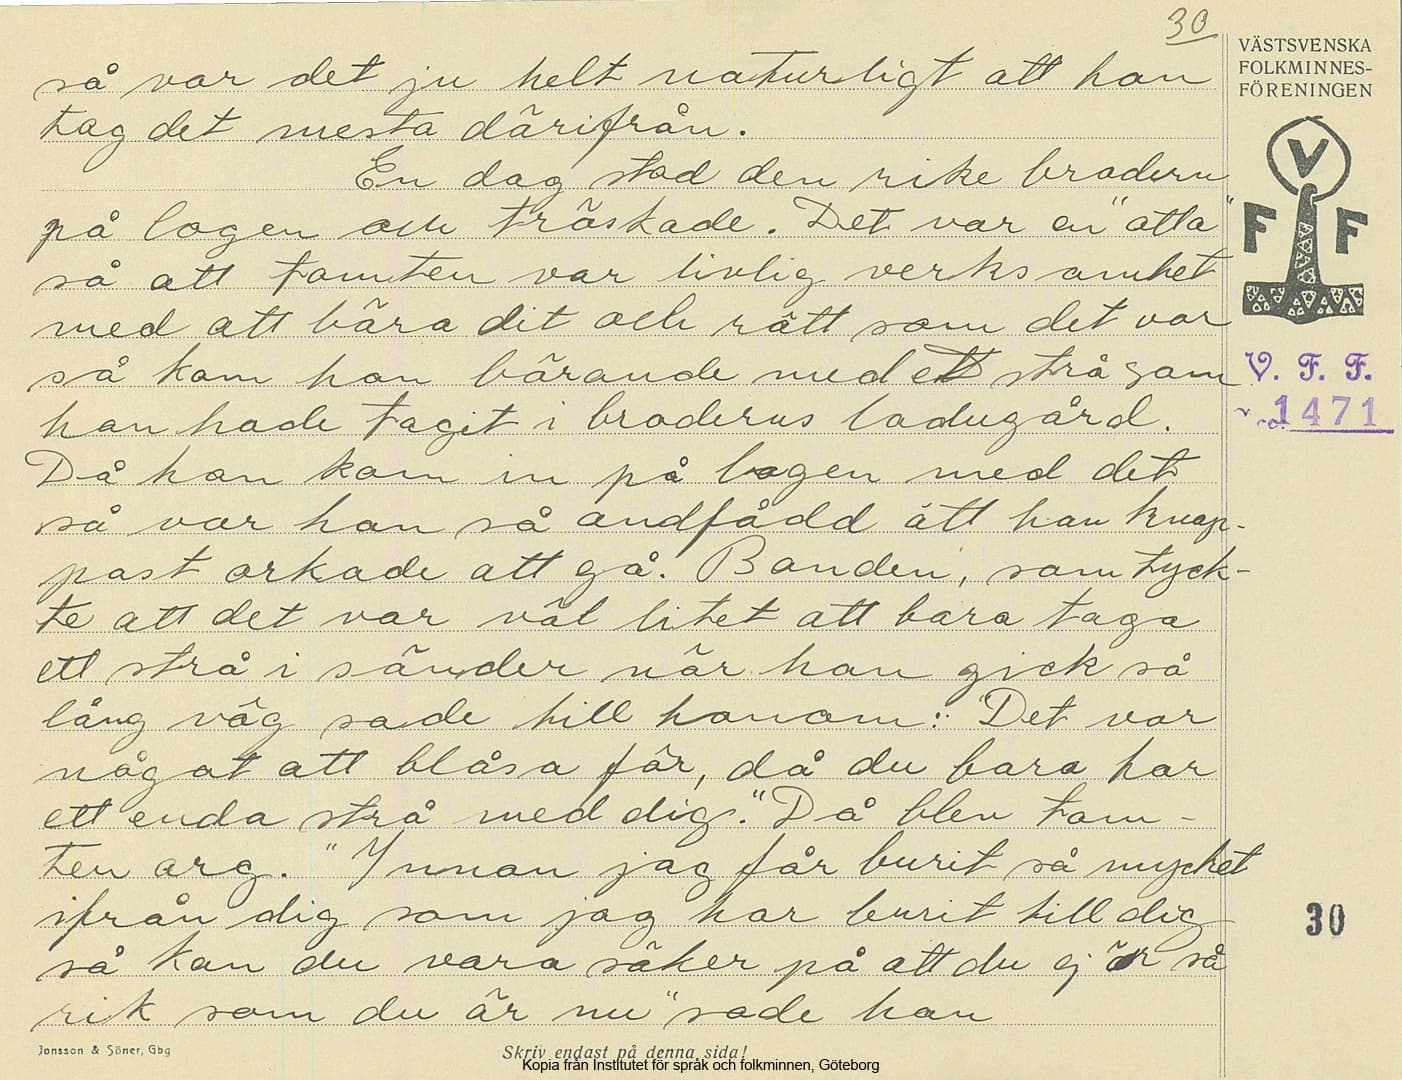 30
VÄSTSVENSKA
FOLKMINNES-
FÖRENINGEN
V
F F
V. F. F.
1471
så var det ju helt naturligt att han
tag det mesta därifrån.
En dag stod den rike brodern
på logen och tröskade. Det var en "otta"
så att tomten var livlig verksamhet
med att bära dit och rätt som det var
så kom han bärande med ett strå som
han hade tagit i broderns ladugård.
Då han kom in på logen med det
så var han så andfådd att han knap-
past orkade att gå. Bonden, som tyck-
te att det var väl litet att bara taga
ett strå i sänder när han gick så
lång väg sade till honom: "Det var
något att blåsa för, då du bara har
ett enda strå med dig." Då blev tom-
ten arg. "Innan jag får burit så mycket
ifrån dig som jag har burit till dig
så kan du vara säker på att du ej är så
rik som du är nu" sade han
30
Jonsson & Söner, Gbg
Skriv endast på denna sida!
Kopia från Institutet för språk och folkminnen, Göteborg